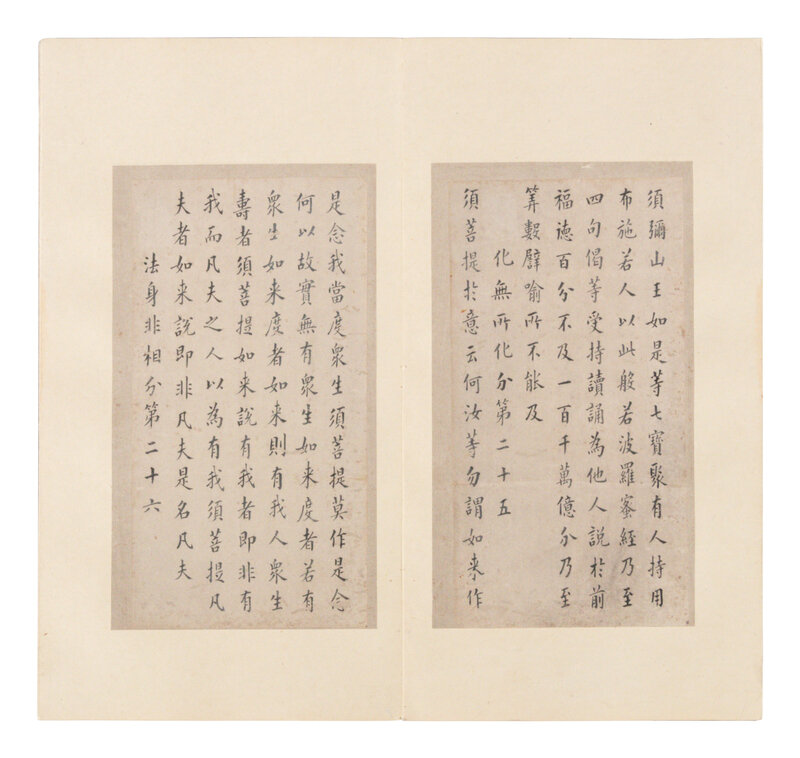 須彌山王如是等七寶聚有人持用
布施若人以此般若波羅蜜經乃至
四句偈等受持讀誦為他人說於前
福德百分不及一百千萬億分乃至
筭數譬喻所不能及
化無所化分第二十五
須菩提於意云何汝等勿謂如来作
是念我當度衆生須菩提莫作是念
何以故實無有衆生如来度者若有
衆生如来度者如来則有我人衆生
壽者須菩提如来說有我者即非有
我而凡夫之人以為有我須菩提凡
夫者如来說即非凡夫是名凡夫
法身非相分第二十六